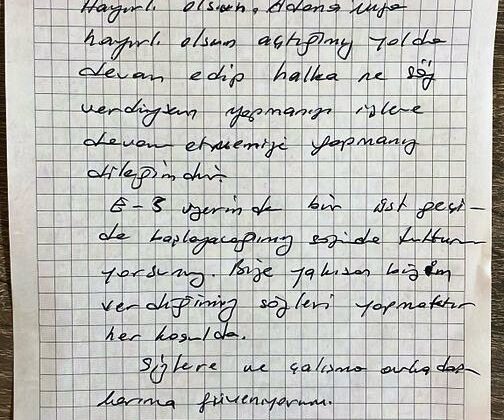 Hayırlı olsun. Adana'mıza
hayırlı olsun açtığımız yolda
devam edip halka ne söz
verdiysen yapmanızı işlere
devam etmenizi yapmanız
dileğimdir.
E-5 üzerinde bir üst geçi-
de başlayacağınız sözünde tutun-
yorsunuz. Bize yakışan bizim
verdiğimiz sözleri yapmaktır
her koşulda.
Sizlere ve çalışma arkadaş-
larıma güveniyorum.